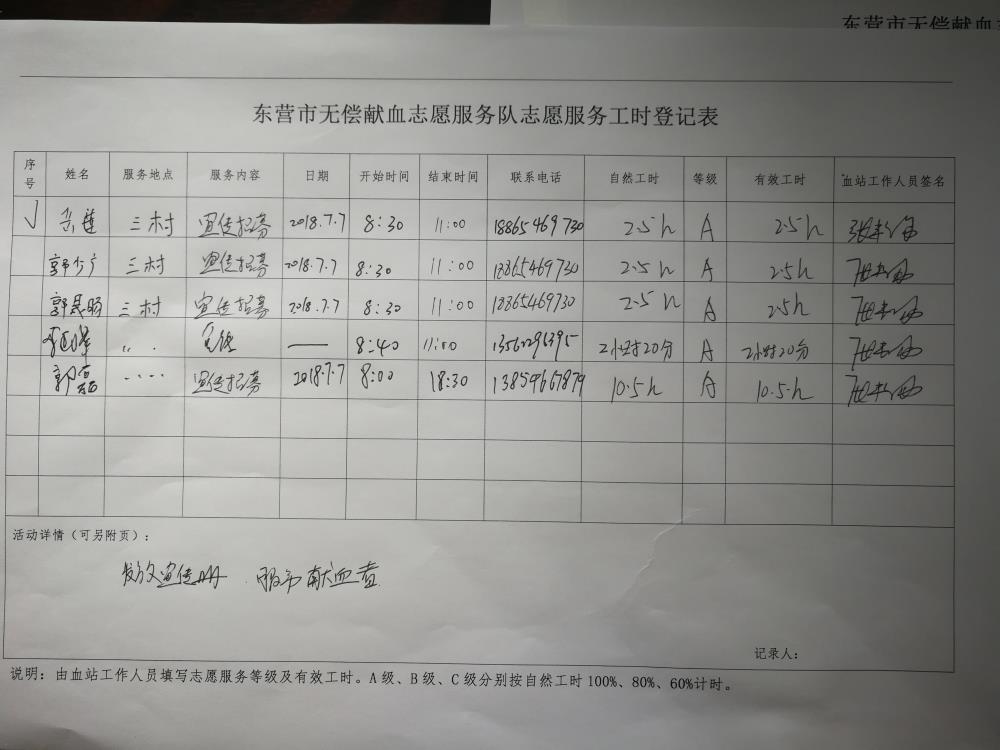 东营市无偿献血
东营市无偿献血志愿服务队志愿服务工时登记表
序号 姓名 服务地点 服务内容 日期 开始时间 结束时间 联系电话 自然工时 等级 有效工时 血站工作人员签名
√ 三村 宣传招募 2018.7.7 8:30 11:00 18865469730 2.5h A 2.5h
郭少广 三村 宣传招募 2018.7.7 8:30 11:00 18865469730 2.5h A 2.5h
郭晨明 三村 宣传招募 2018.7.7 8:30 11:00 18865469730 2.5h A 2.5h
〃 . —— 8:40 11:00 13562291395 2小时20分 A 2小时20分
郭 ···· 宣传招募 2018.7.7 8:00 18:30 13854667879 10.5h A 10.5h
活动详情（可另附页）：
发放宣传册 服务献血者
记录人：
说明：由血站工作人员填写志愿服务等级及有效工时。A 级、B 级、C 级分别按自然工时 100%、80%、60%计时。